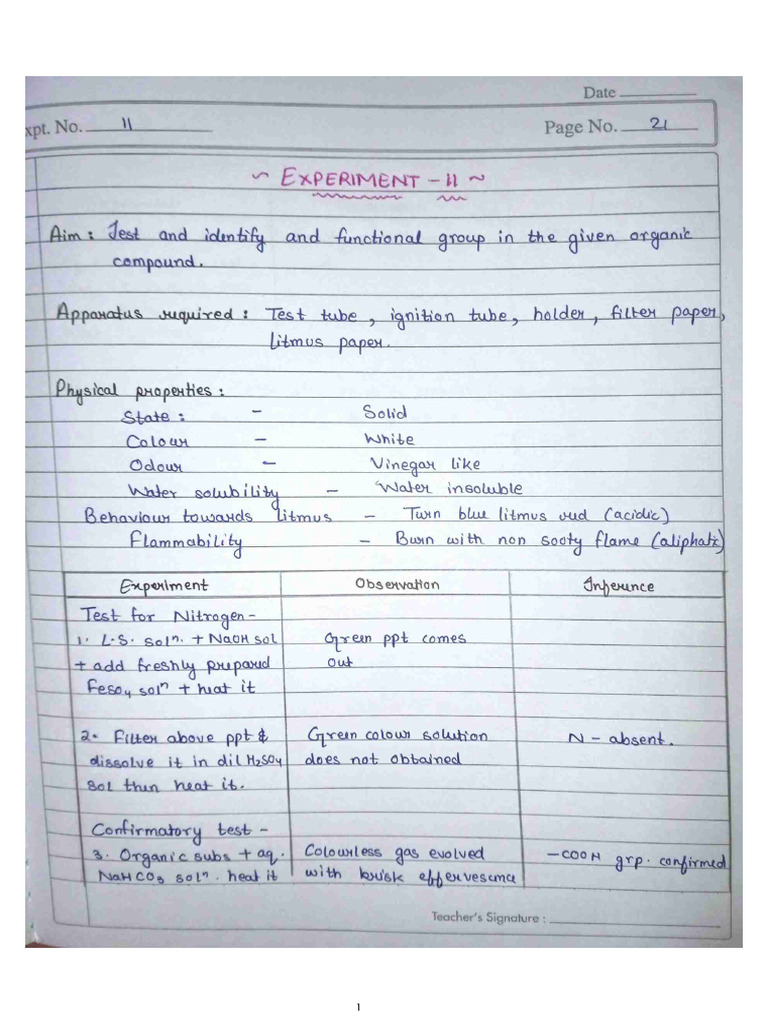 Date
xpt. No. 11
Page No. 21
~ EXPERIMENT - 11 ~
Aim : Test and identify and functional group in the given organic
compound.
Apparatus required : Test tube, ignition tube, holder, filter paper,
litmus paper.
Physical properties :
State : - Solid
Colour - White
Odour - Vinegar like
Water solubility - Water insoluble
Behaviour towards litmus - Turn blue litmus red (acidic)
Flammability - Burn with non sooty flame (aliphatic)
Experiment Observation Inference
Test for Nitrogen -
1. L.S. solⁿ. + NaOH sol Green ppt comes
+ add freshly prepared out
FeSO4 solⁿ + heat it
2. Filter above ppt & Green colour solution N - absent.
dissolve it in dil H2SO4 does not obtained
sol then heat it.
Confirmatory test -
3. Organic subs + aq. Colourless gas evolved - COOH grp. confirmed
NaHCO3 solⁿ. heat it with brisk effervescence
Teacher's Signature :
1